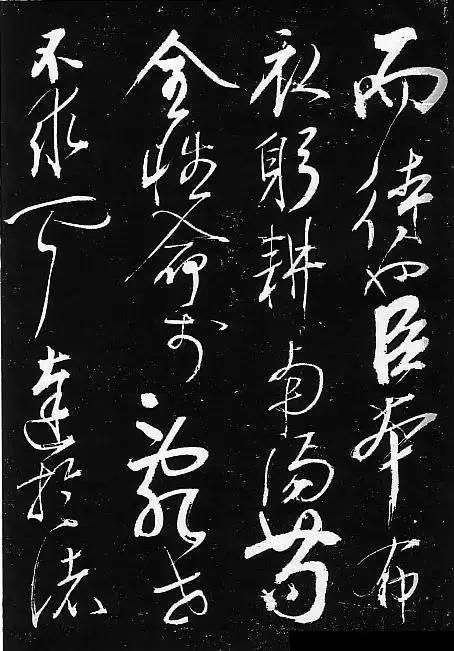 而待也臣本布
衣躬耕南陽苟
全性命于亂世
不求聞達於諸